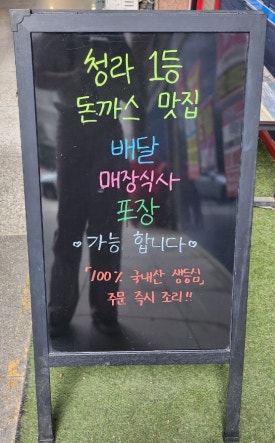 청라 1등
돈까스 맛집
배달
매장식사
포장
♡가능 합니다♡
「100% 국내산 생등심」
주문 즉시 조리!!